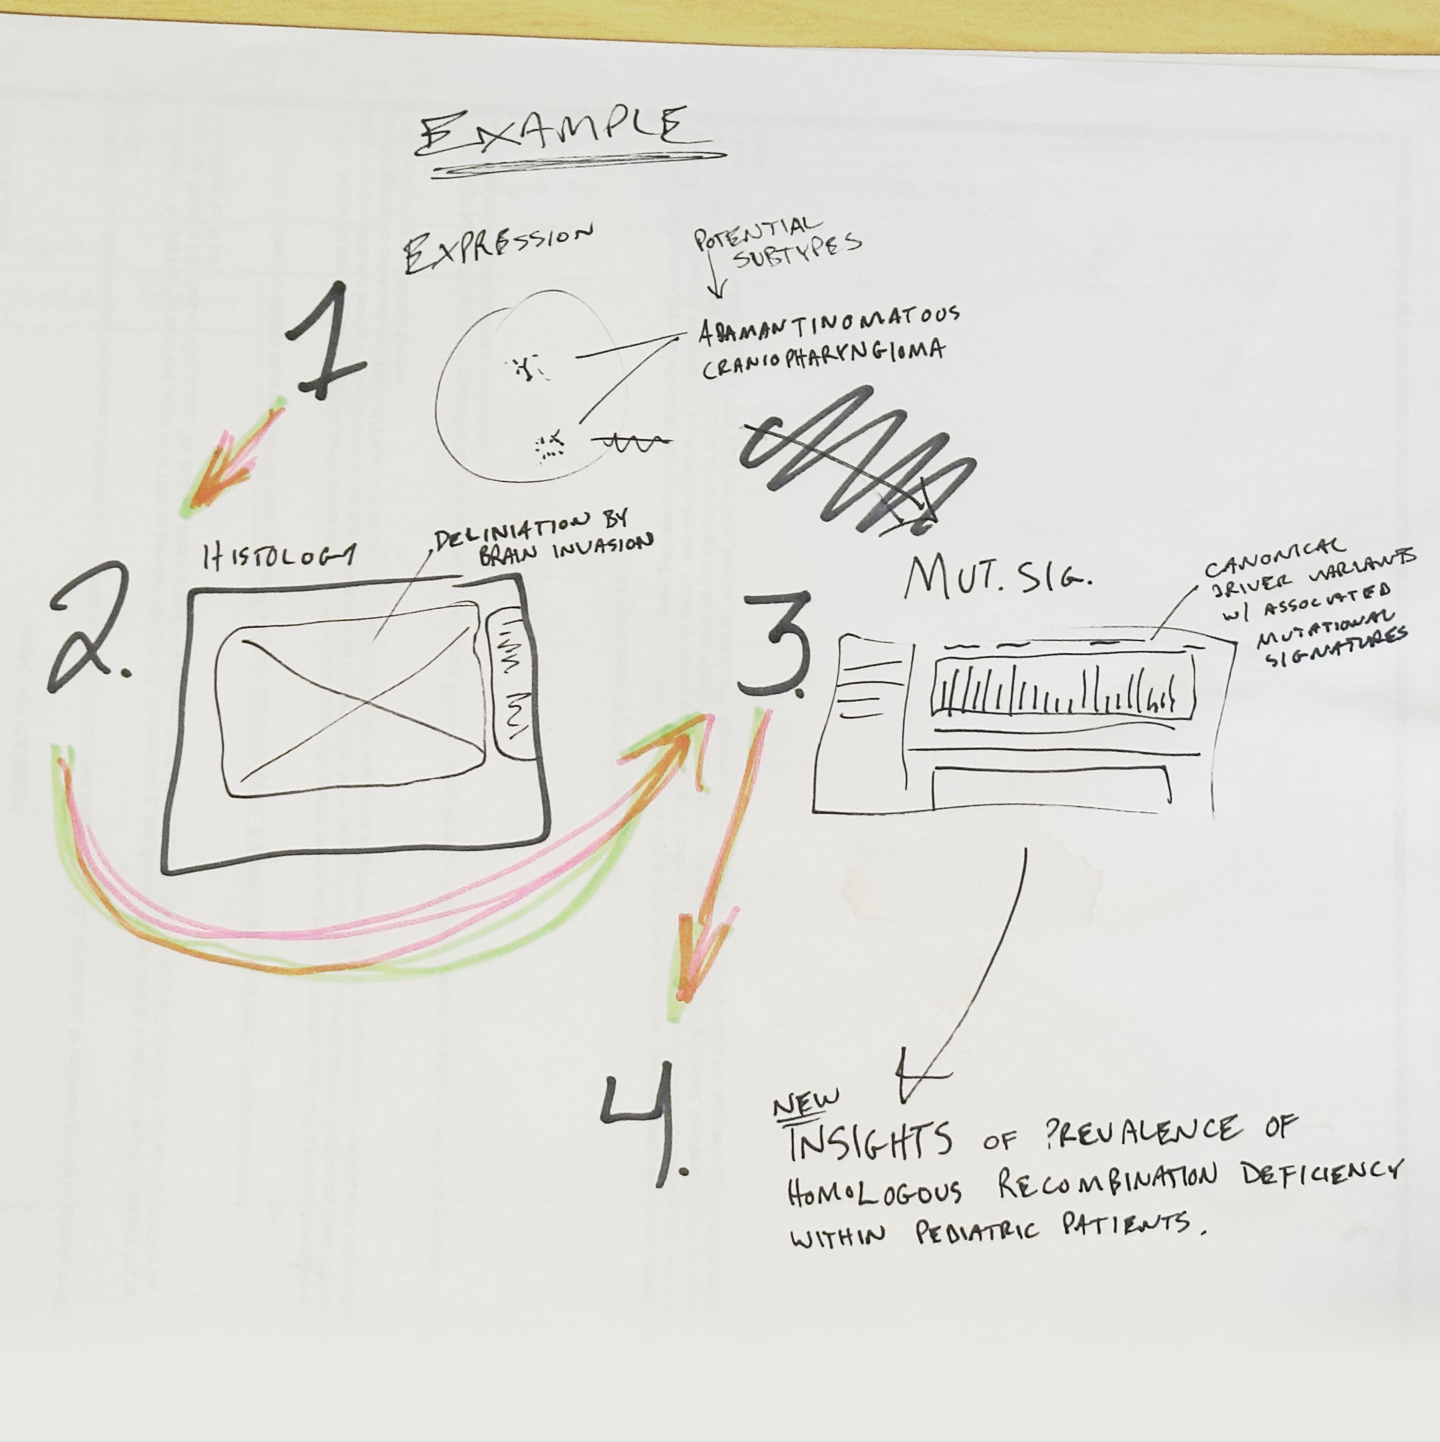 EXAMPLE
EXPRESSION
POTENTIAL
SUBTYPES
1
ADAMANTINOMATOUS
CRANIOPHARYNGIOMA
2.
HISTOLOGY
DELINIATION BY
BRAIN INVASION
3.
MUT. SIG.
CANONICAL
DRIVER VARIANTS
W/ ASSOCIATED
MUTATIONAL
SIGNATURES
4.
NEW
INSIGHTS OF PREVALENCE OF
HOMOLOGOUS RECOMBINATION DEFICIENCY
WITHIN PEDIATRIC PATIENTS.